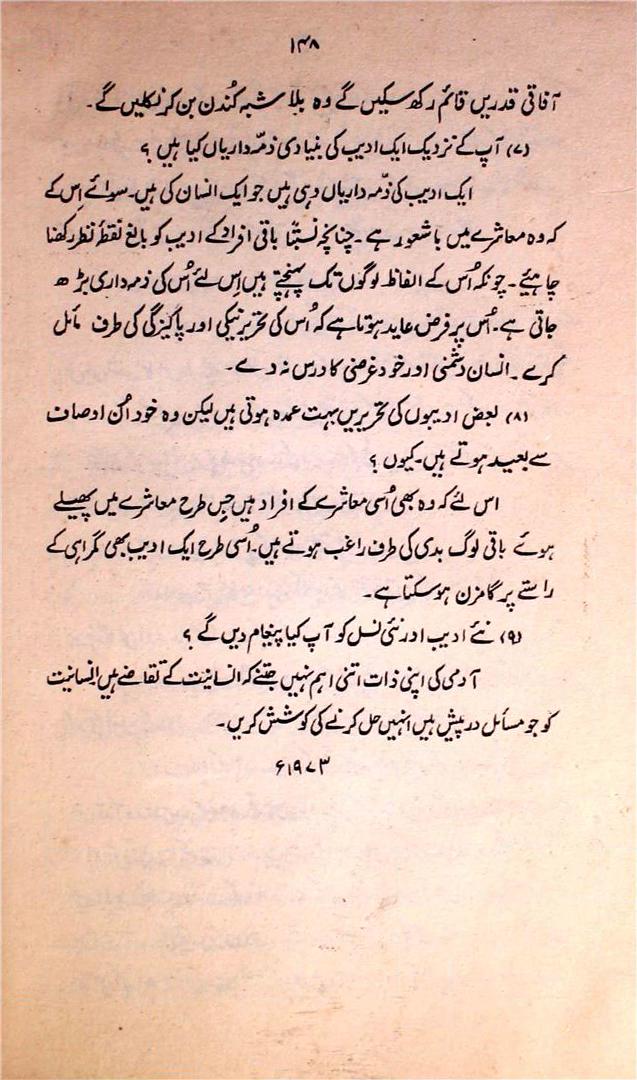 ۱۴۸
آفاقی قدریں قائم رکھ سکیں گے وہ بلا شبہ کُندن بن کر نکلیں گے۔
(۷) آپ کے نزدیک ایک ادیب کی بنیادی ذمّہ داریاں کیا ہیں ؟
ایک ادیب کی ذمّہ داریاں وہی ہیں جو ایک انسان کی ہیں۔ سوائے اِس کے
کہ وہ معاشرے میں باشعور ہے۔ چنانچہ نسبتاً باقی افراد کے ادیب کو بالغ نقطۂ نظر رکھنا
چاہئیے۔ چونکہ اُس کے الفاظ لوگوں تک پہنچتے ہیں اِس لئے اُس کی ذمہ داری بڑھ
جاتی ہے۔ اُس پر فرض عاید ہوتا ہے کہ اُس کی تحریر نیکی اور پاکیزگی کی طرف مائل
کرے۔ انسان دشمنی اور خود غرضی کا درس نہ دے۔
(۸) بعض ادیبوں کی تحریریں بہت عمدہ ہوتی ہیں لیکن وہ خود اُن اوصاف
سے بعید ہوتے ہیں۔ کیوں ؟
اس لئے کہ وہ بھی اُسی معاشرے کے افراد ہیں جس طرح معاشرے میں پھیلے
ہوئے باقی لوگ بدی کی طرف راغب ہوتے ہیں۔ اُسی طرح ایک ادیب بھی گمراہی کے
راستے پر گامزن ہو سکتا ہے۔
(۹) نئے ادیب اور نئی نسل کو آپ کیا پیغام دیں گے ؟
آدمی کی اپنی ذات اتنی اہم نہیں جتنے کہ انسانیت کے تقاضے ہیں انسانیت
کو جو مسائل درپیش ہیں انہیں حل کرنے کی کوشش کریں۔
۱۹۷۳ء